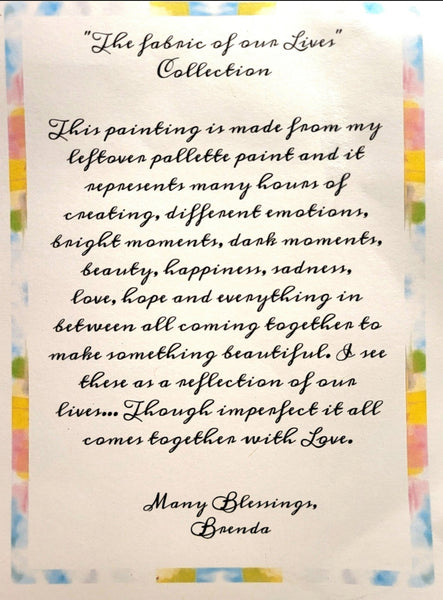 "The fabric of our Lives"
Collection
This painting is made from my
leftover pallette paint and it
represents many hours of
creating, different emotions,
bright moments, dark moments,
beauty, happiness, sadness,
love, hope and everything in
between all coming together to
make something beautiful. I see
these as a reflection of our
lives... Though imperfect it all
comes together with Love.
Many Blessings,
Brenda